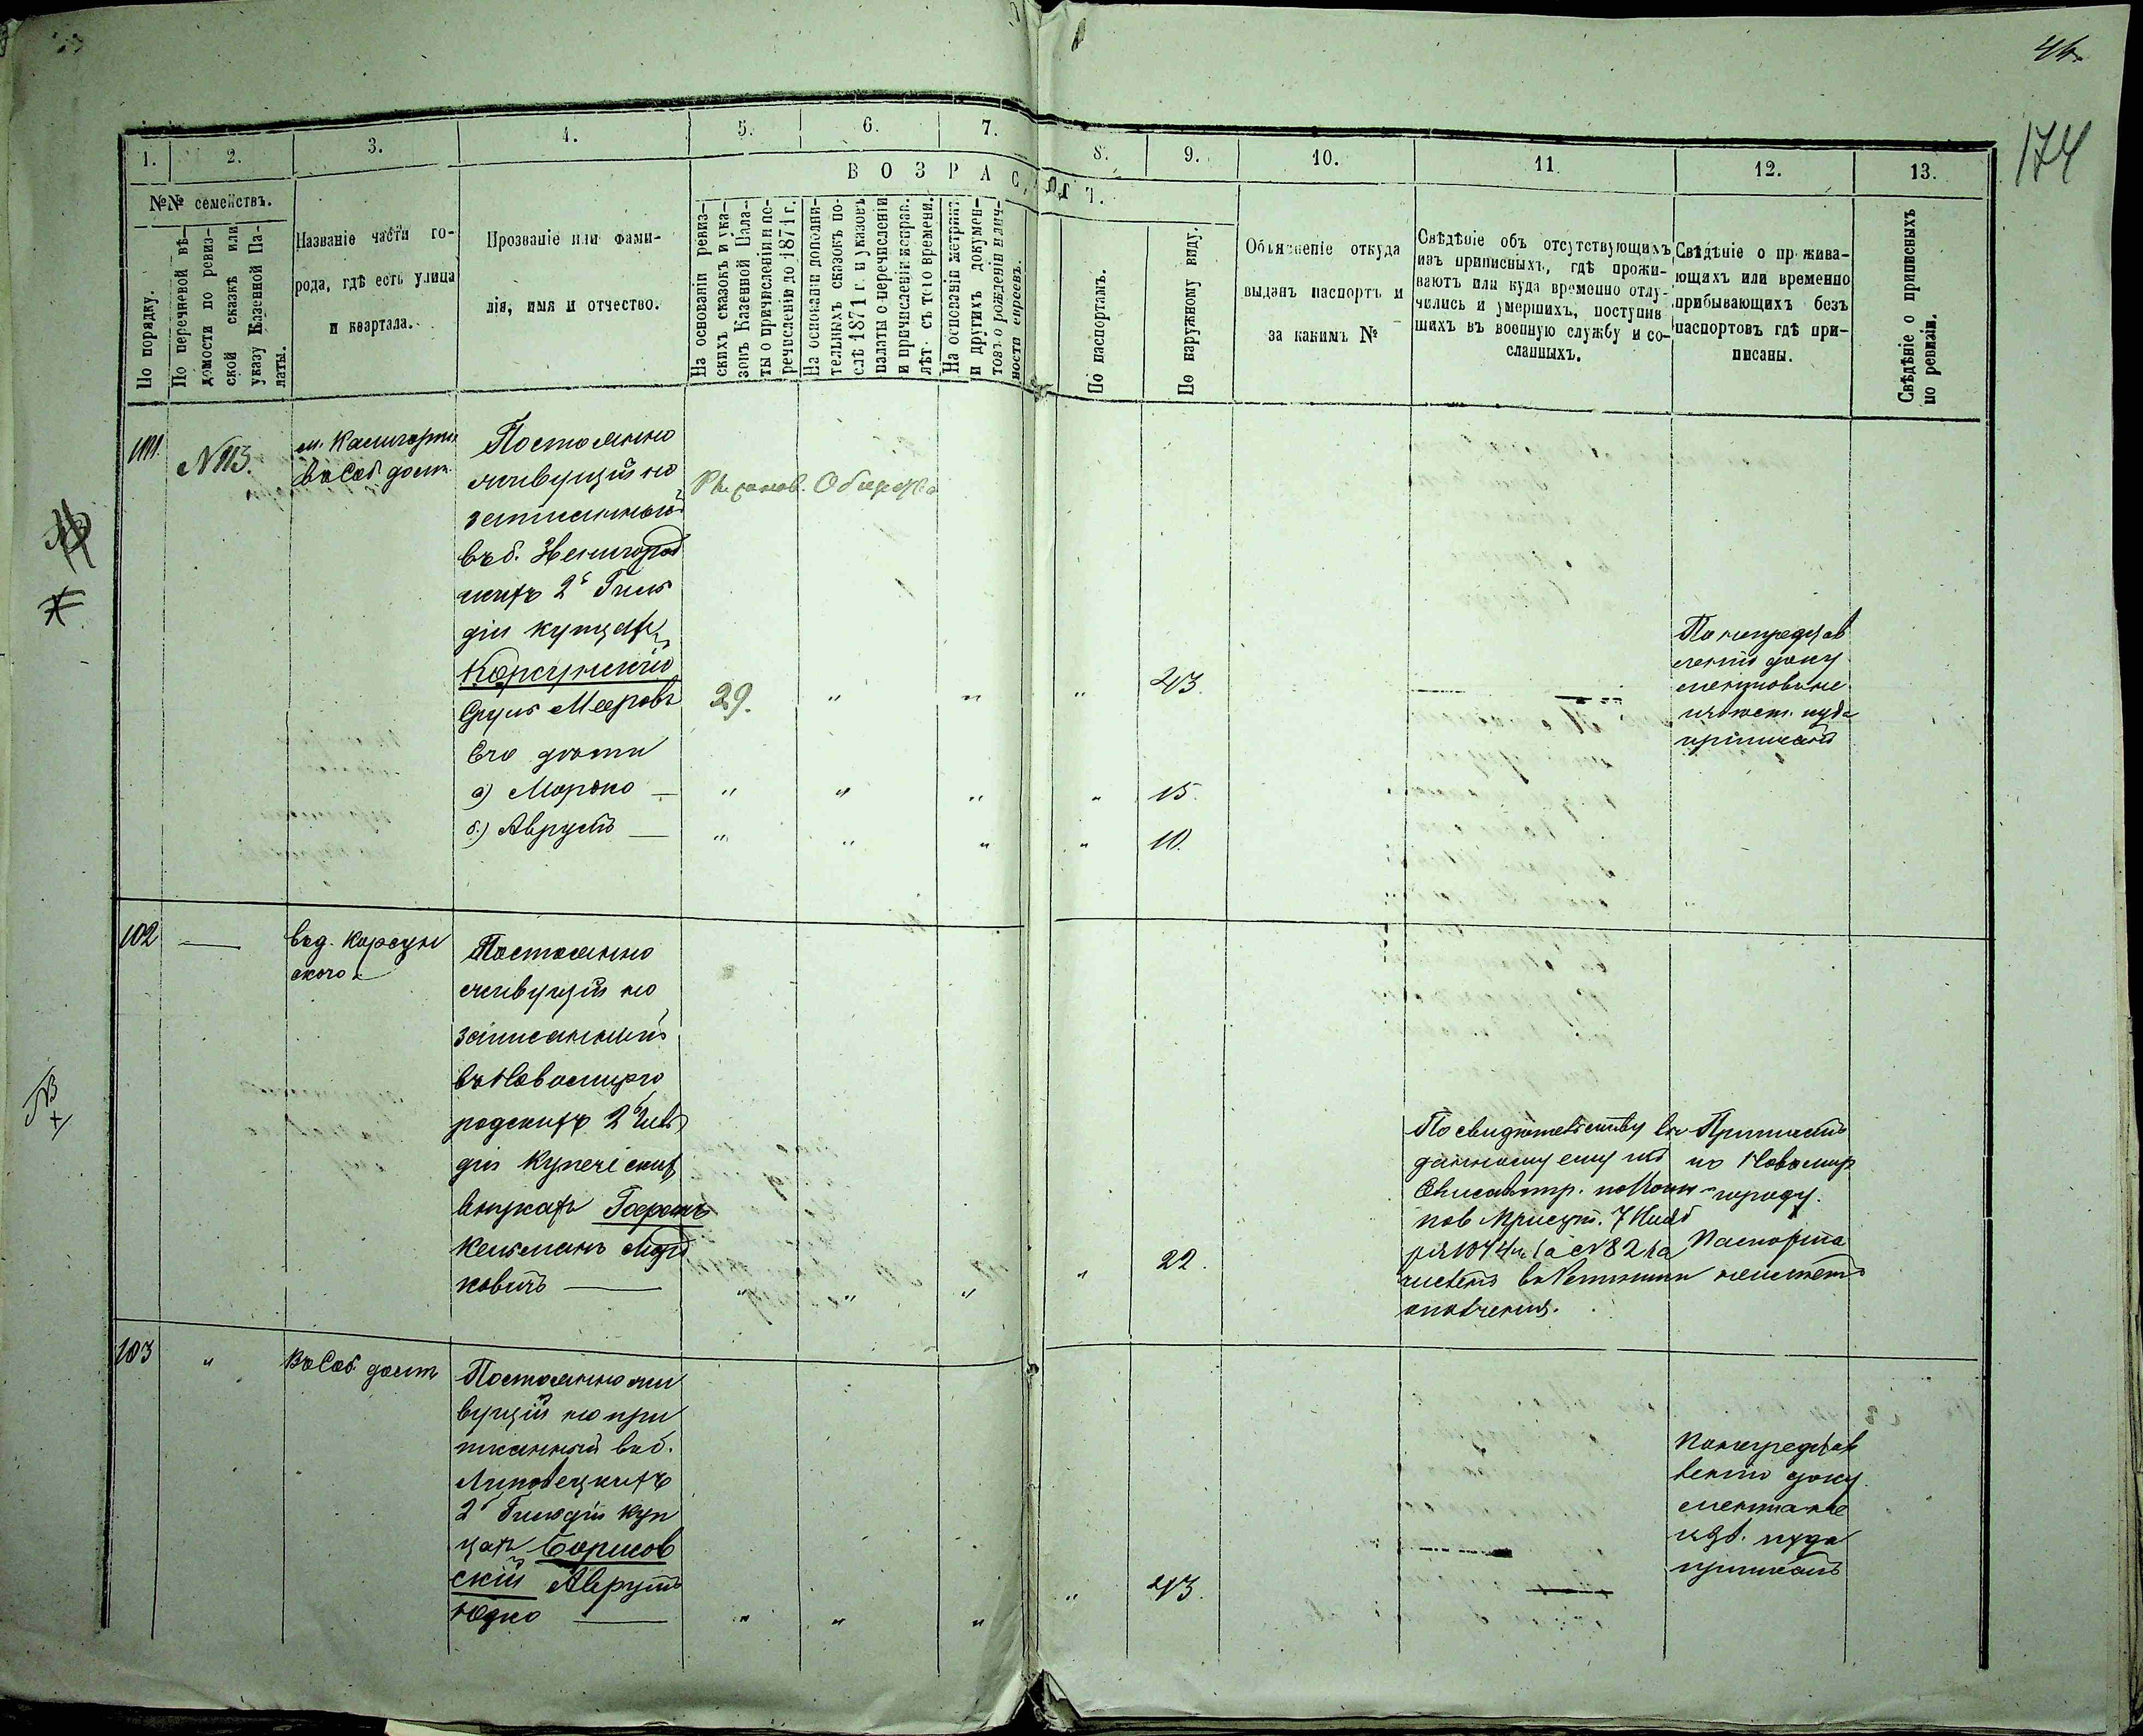 46.
174
1.
2.
3.
4.
5.
6.
7.
8.
9.
10.
11
12.
13.
ВОЗРАСТ.
№№ семействъ.
По порядку.
По перечневой вѣ-
домости по ревиз-
ской сказкѣ или
указу Казенной Па-
латы.
Названіе части го-
рода, гдѣ есть улица
и квартала.
Прозваніе или фами-
лія, имя и отчество.
На основаніи ревиз-
скихъ сказокъ и ука-
зовъ Казенной Пала-
ты о причисленіи и пе-
речисленію до 1871 г.
На основаніи дополни-
тельныхъ сказокъ по-
слѣ 1871 г. и указовъ
палаты о перечисленіи
и причисленіи исправ.
лѣт. съ того времени.
На основаніи метрикъ
и другихъ докумен-
товъ о рожденіи и лич-
ности евреевъ.
По паспортамъ.
По наружному виду.
Объясненіе откуда
выданъ паспортъ и
за какимъ №
Свѣдѣніе объ отсутствующихъ
изъ приписныхъ, гдѣ прожи-
ваютъ или куда временно отлу-
чились и умершихъ, поступив
шихъ въ военную службу и со-
сланныхъ.
Свѣдѣніе о прожива-
ющихъ или временно
прибывающихъ безъ
паспортовъ гдѣ при-
писаны.
Свѣдѣніе о приписныхъ
по ревизіи.
101.
№ 113.
Постоянно
живущій но
записанный
въ б. Звенигород
скихъ 2й Гиль
діи купцах
Корсунскій
Сруль Мееровъ
29.
"
"
"
43.
Его дѣти
а) Мордко —
"
"
"
"
15.
б.) Аврумъ —
"
"
"
"
10.
По непредстав
ленію доку
приписанъ
102
—
въ д. Корсун
ского
Постоянно
живущій но
записанный
въ Новомирго
родскихъ 2й Гиль
діи Купеческих
внукахъ
Кельманъ Мор
ковичъ —
"
"
"
"
22.
По свидѣтельству вы
данному ему изъ
Приписанъ
по Новомир
городу.
Паспорта
неимѣетъ
ополченія.
103
"
Въ Соб. домѣ
Постоянно жи
вущій но при
писанный въ б.
Липовецкихъ
2й Гильдіи куп
цах Борисов
скій Аврумъ
Юдко —
"
"
"
"
43.
По непредстав
ленію доку
мента не
изв. куда
приписанъ